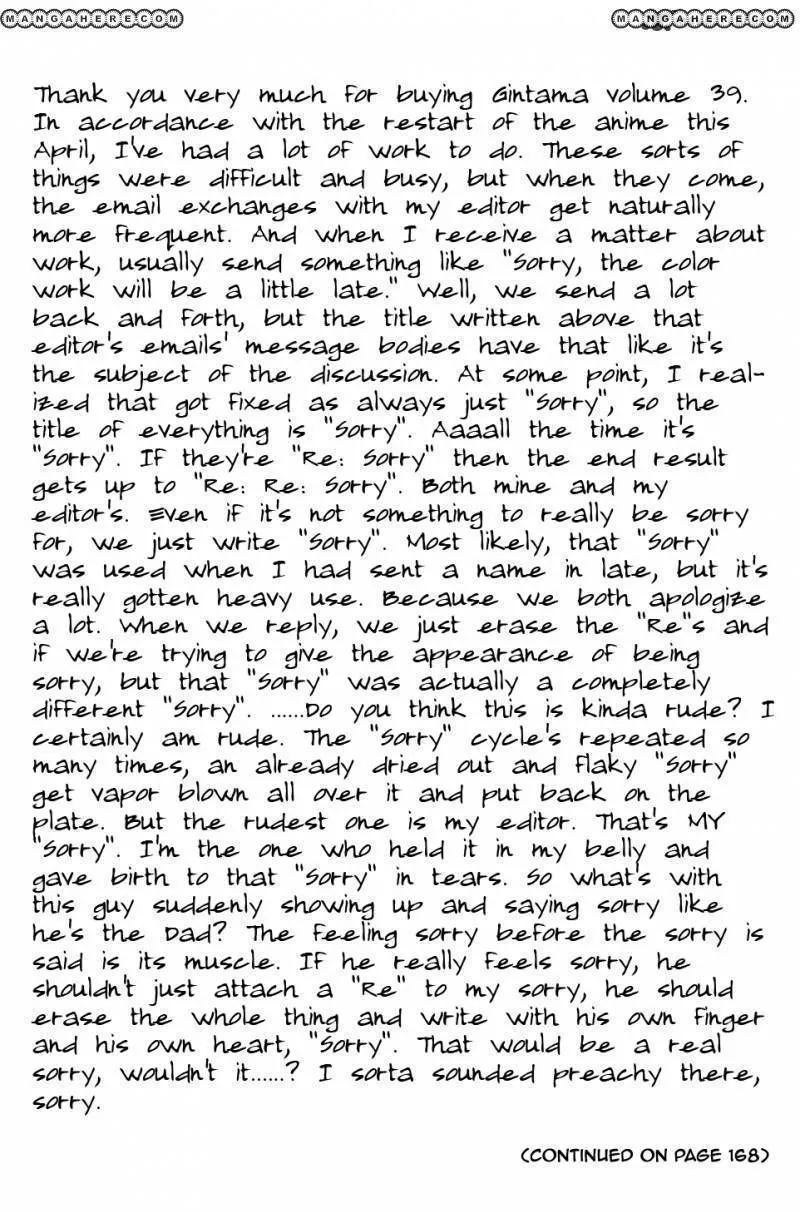 MANGAHERE.COM MANGAHERE.COM
Thank you very much for buying Gintama volume 39.
In accordance with the restart of the anime this
April, I've had a lot of work to do. These sorts of
things were difficult and busy, but when they come,
the email exchanges with my editor get naturally
more frequent. And when I receive a matter about
work, usually send something like "Sorry, the color
work will be a little late." Well, we send a lot
back and forth, but the title written above that
editor's emails' message bodies have that like it's
the subject of the discussion. At some point, I real-
ized that got fixed as always just "Sorry", so the
title of everything is "Sorry". Aaaall the time it's
"Sorry". If they're "Re: Sorry" then the end result
gets up to "Re: Re: Sorry". Both mine and my
editor's. Even if it's not something to really be sorry
for, we just write "Sorry". Most likely, that "Sorry"
was used when I had sent a name in late, but it's
really gotten heavy use. Because we both apologize
a lot. When we reply, we just erase the "Re"s and
if we're trying to give the appearance of being
sorry, but that "Sorry" was actually a completely
different "Sorry". ......Do you think this is kinda rude? I
certainly am rude. The "Sorry" cycle's repeated so
many times, an already dried out and flaky "Sorry"
get vapor blown all over it and put back on the
plate. But the rudest one is my editor. That's MY
"Sorry". I'm the one who held it in my belly and
gave birth to that "Sorry" in tears. So what's with
this guy suddenly showing up and saying sorry like
he's the Dad? The feeling sorry before the sorry is
said is its muscle. If he really feels sorry, he
shouldn't just attach a "Re" to my sorry, he should
erase the whole thing and write with his own finger
and his own heart, "Sorry". That would be a real
sorry, wouldn't it......? I sorta sounded preachy there,
sorry.
(CONTINUED ON PAGE 168)